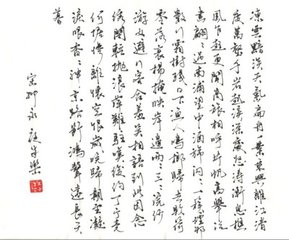 凍雲黯淡天氣扁舟一葉乘興離江渚
度萬壑千岩越溪深處怒濤漸息樵
風乍起更聞商旅相呼片帆高舉泛
畫鷁翩翩過南浦望中酒旆閃閃一簇烟邨
數行霜樹殘日下漁人鳴榔歸去敗荷
零落衰楊掩映岸邊兩兩三三浣紗
游女避行客含羞笑相語到此因念
繡閣輕拋浪萍難駐嘆後約丁寧竟
何據慘離懷空恨歲晚歸期阻凝
淚眼杳杳神京路斷鴻聲遠長天
暮
宋柳永夜半樂